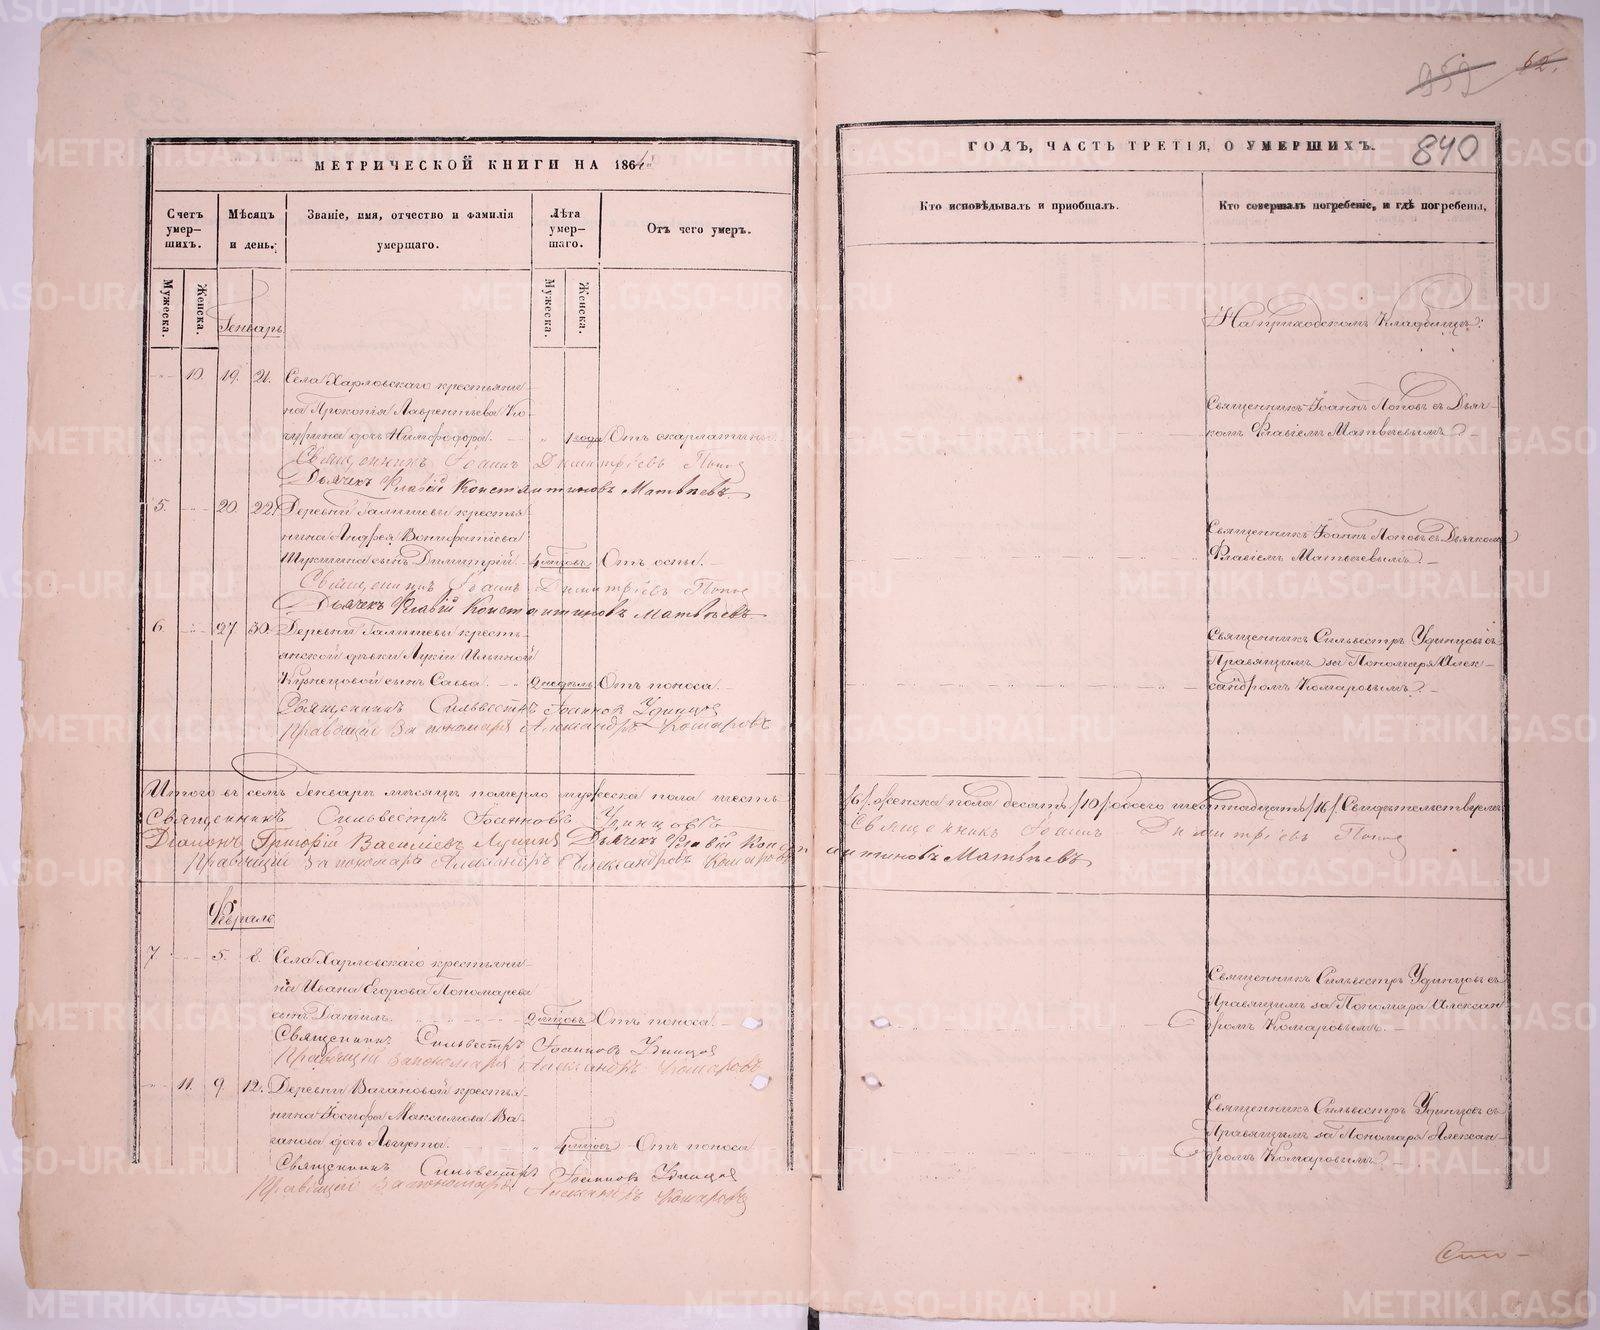 840
МЕТРИЧЕСКОЙ КНИГИ НА 186
ГОДЪ, ЧАСТЬ ТРЕТІЯ, О УМЕРШИХЪ.
Счетъ умер-
шихъ.
Мѣсяцъ
и день.
Званіе, имя, отчество и фамилія
умершаго.
Лѣта
умер-
шаго.
Отъ чего умеръ.
Кто исповѣдывалъ и пріобщалъ.
Кто совершалъ погребеніе, и гдѣ погребены,
Мужеска.
Женска.
Мужеска.
Женска.
Генварь
На приходскомъ кладбищѣ:
10. 19. 21. Села Харловскаго крестьяни-
на Прокопія Лаврентьева Ко-
дочь Нимфодора. 1 года Отъ скарлатины.
Священникъ Іоаннъ Поповъ съ Дьяч-
комъ Флавіемъ Матвѣевымъ
Священникъ Іоаннъ Димитріевъ Попов
Дьячекъ Флавій Константиновъ Матвѣевъ
5. 20. 22. Деревни Галишевы крестья-
нина Андрея Вонифатіева
сынъ Димитрій. 4 Отъ оспы.
Священникъ Іоаннъ Поповъ съ Дьячкомъ
Флавіемъ Матвѣевымъ
Священникъ Іоаннъ Димитріевъ Попов
Дьячекъ Флавій Константиновъ Матвѣевъ
6. 27 30. Деревни Галишевы кресть-
янской дѣвки Лукіи Ильиной
Кузнецовой сынъ Савва. 2 недѣль Отъ поноса.
Священникъ Сильвестръ Удинцовъ съ
Правящимъ за Пономаря Алек-
сандромъ Комаровымъ
Священникъ Сильвестръ Іоанновъ Удинцов
Правящій за пономаря Александръ Комаровъ
Итого въ семъ Генварѣ мѣсяцѣ померло мужеска пола шесть
/6/ женска пола десять /10/ обоего шестнадцать /16/. Свидѣтельствуемъ
Священникъ Сильвестръ Іоанновъ Удинцовъ
Священникъ Іоаннъ Димитріевъ Попов
Діаконъ Григорій Васильевъ Дьячекъ Флавій Константиновъ Матвѣевъ
Правящій за пономаря Александръ Александровъ Комаровъ
Февраль
7 5. 8. Села Харловскаго крестьяни-
на Ивана Егорова Пономарева
сынъ Даніилъ. 2 Отъ поноса.
Священникъ Сильвестръ Удинцовъ съ
Правящимъ за Пономаря Александромъ Комаровымъ.
Священникъ Сильвестръ Іоанновъ Удинцов
Правящій за пономаря Александръ Комаровъ
11. 9 12. Деревни Вагановой крестья-
нина Іосифа Максимова Ва-
ганова дочь Августа. 4 Отъ поноса
Священникъ Сильвестръ Удинцовъ съ
Правящимъ за Пономаря Алексан-
дромъ Комаровымъ
Священникъ Сильвестръ Іоанновъ Удинцов
Правящій за пономаря Александръ Комаровъ
METRIKI.GASO-URAL.RU